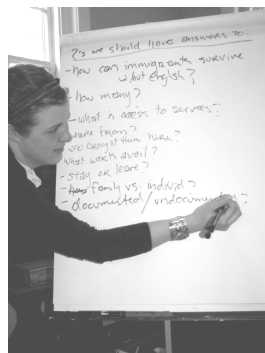 ?'s we should have answers to:
- how can immigrants survive
w/out English?
- how many?
- what is access to services?
where from?
who brought them here?
what work avail?
- stay or leave?
- family vs. individ?
- documented/undocumented?